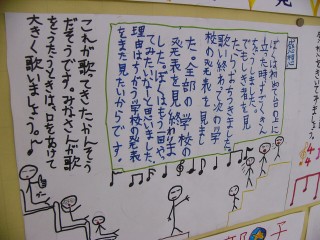 感想
ぼくは初めて台の上に
立った時、すごくきん
ちょうしました。
でもしき者を見
たらおちつきました。
歌い終わって次の学
校の発表を見まし
た。全部の学校の
発表を見終わりま
した。ぼくはもう一回や
てみたいなーと思いました。
理由はちがう学校の発表
をまた見たいからです。
これが歌ってきたかんそう
だそうです。みなさんが歌
をうたうときは、口をあけて
大きく歌いましょう。～